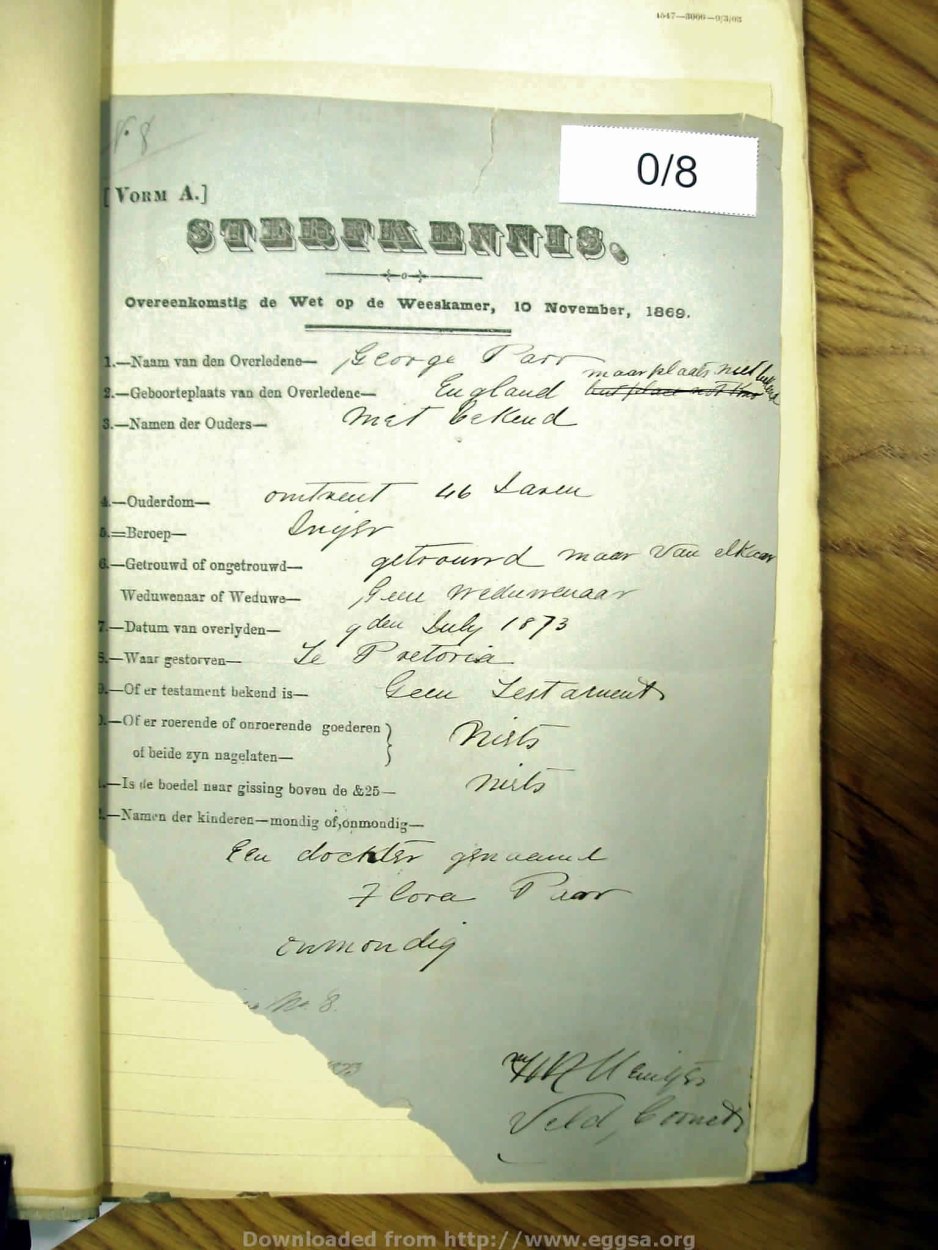 4547—3000—9/3/03
No. 8
0/8
[VORM A.]
STERFKENNIS.
Overeenkomstig de Wet op de Weeskamer, 10 November, 1869.
1.—Naam van den Overledene— George Parr
maar plaats niet bekend
2.—Geboorteplaats van den Overledene— England but place not know
3.—Namen der Ouders— niet bekend
4.—Ouderdom— omtrent 46 Jaren
5.=Beroep—
6.—Getrouwd of ongetrouwd— getrouwd maar van elkaar
Weduwenaar of Weduwe— Geen weduwenaar
7.—Datum van overlyden— 9den July 1873
8.—Waar gestorven— Te Pretoria
9.—Of er testament bekend is— Geen Testament
).—Of er roerende of onroerende goederen }
of beide zyn nagelaten— Niets
.—Is de boedel naar gissing boven de &25— Niets
.—Namen der kinderen—mondig of,onmondig—
Een dochter genaamd
Flora Parr
onmondig
No. 8.
1873
Veld Cornet
Downloaded from http://www.eggsa.org